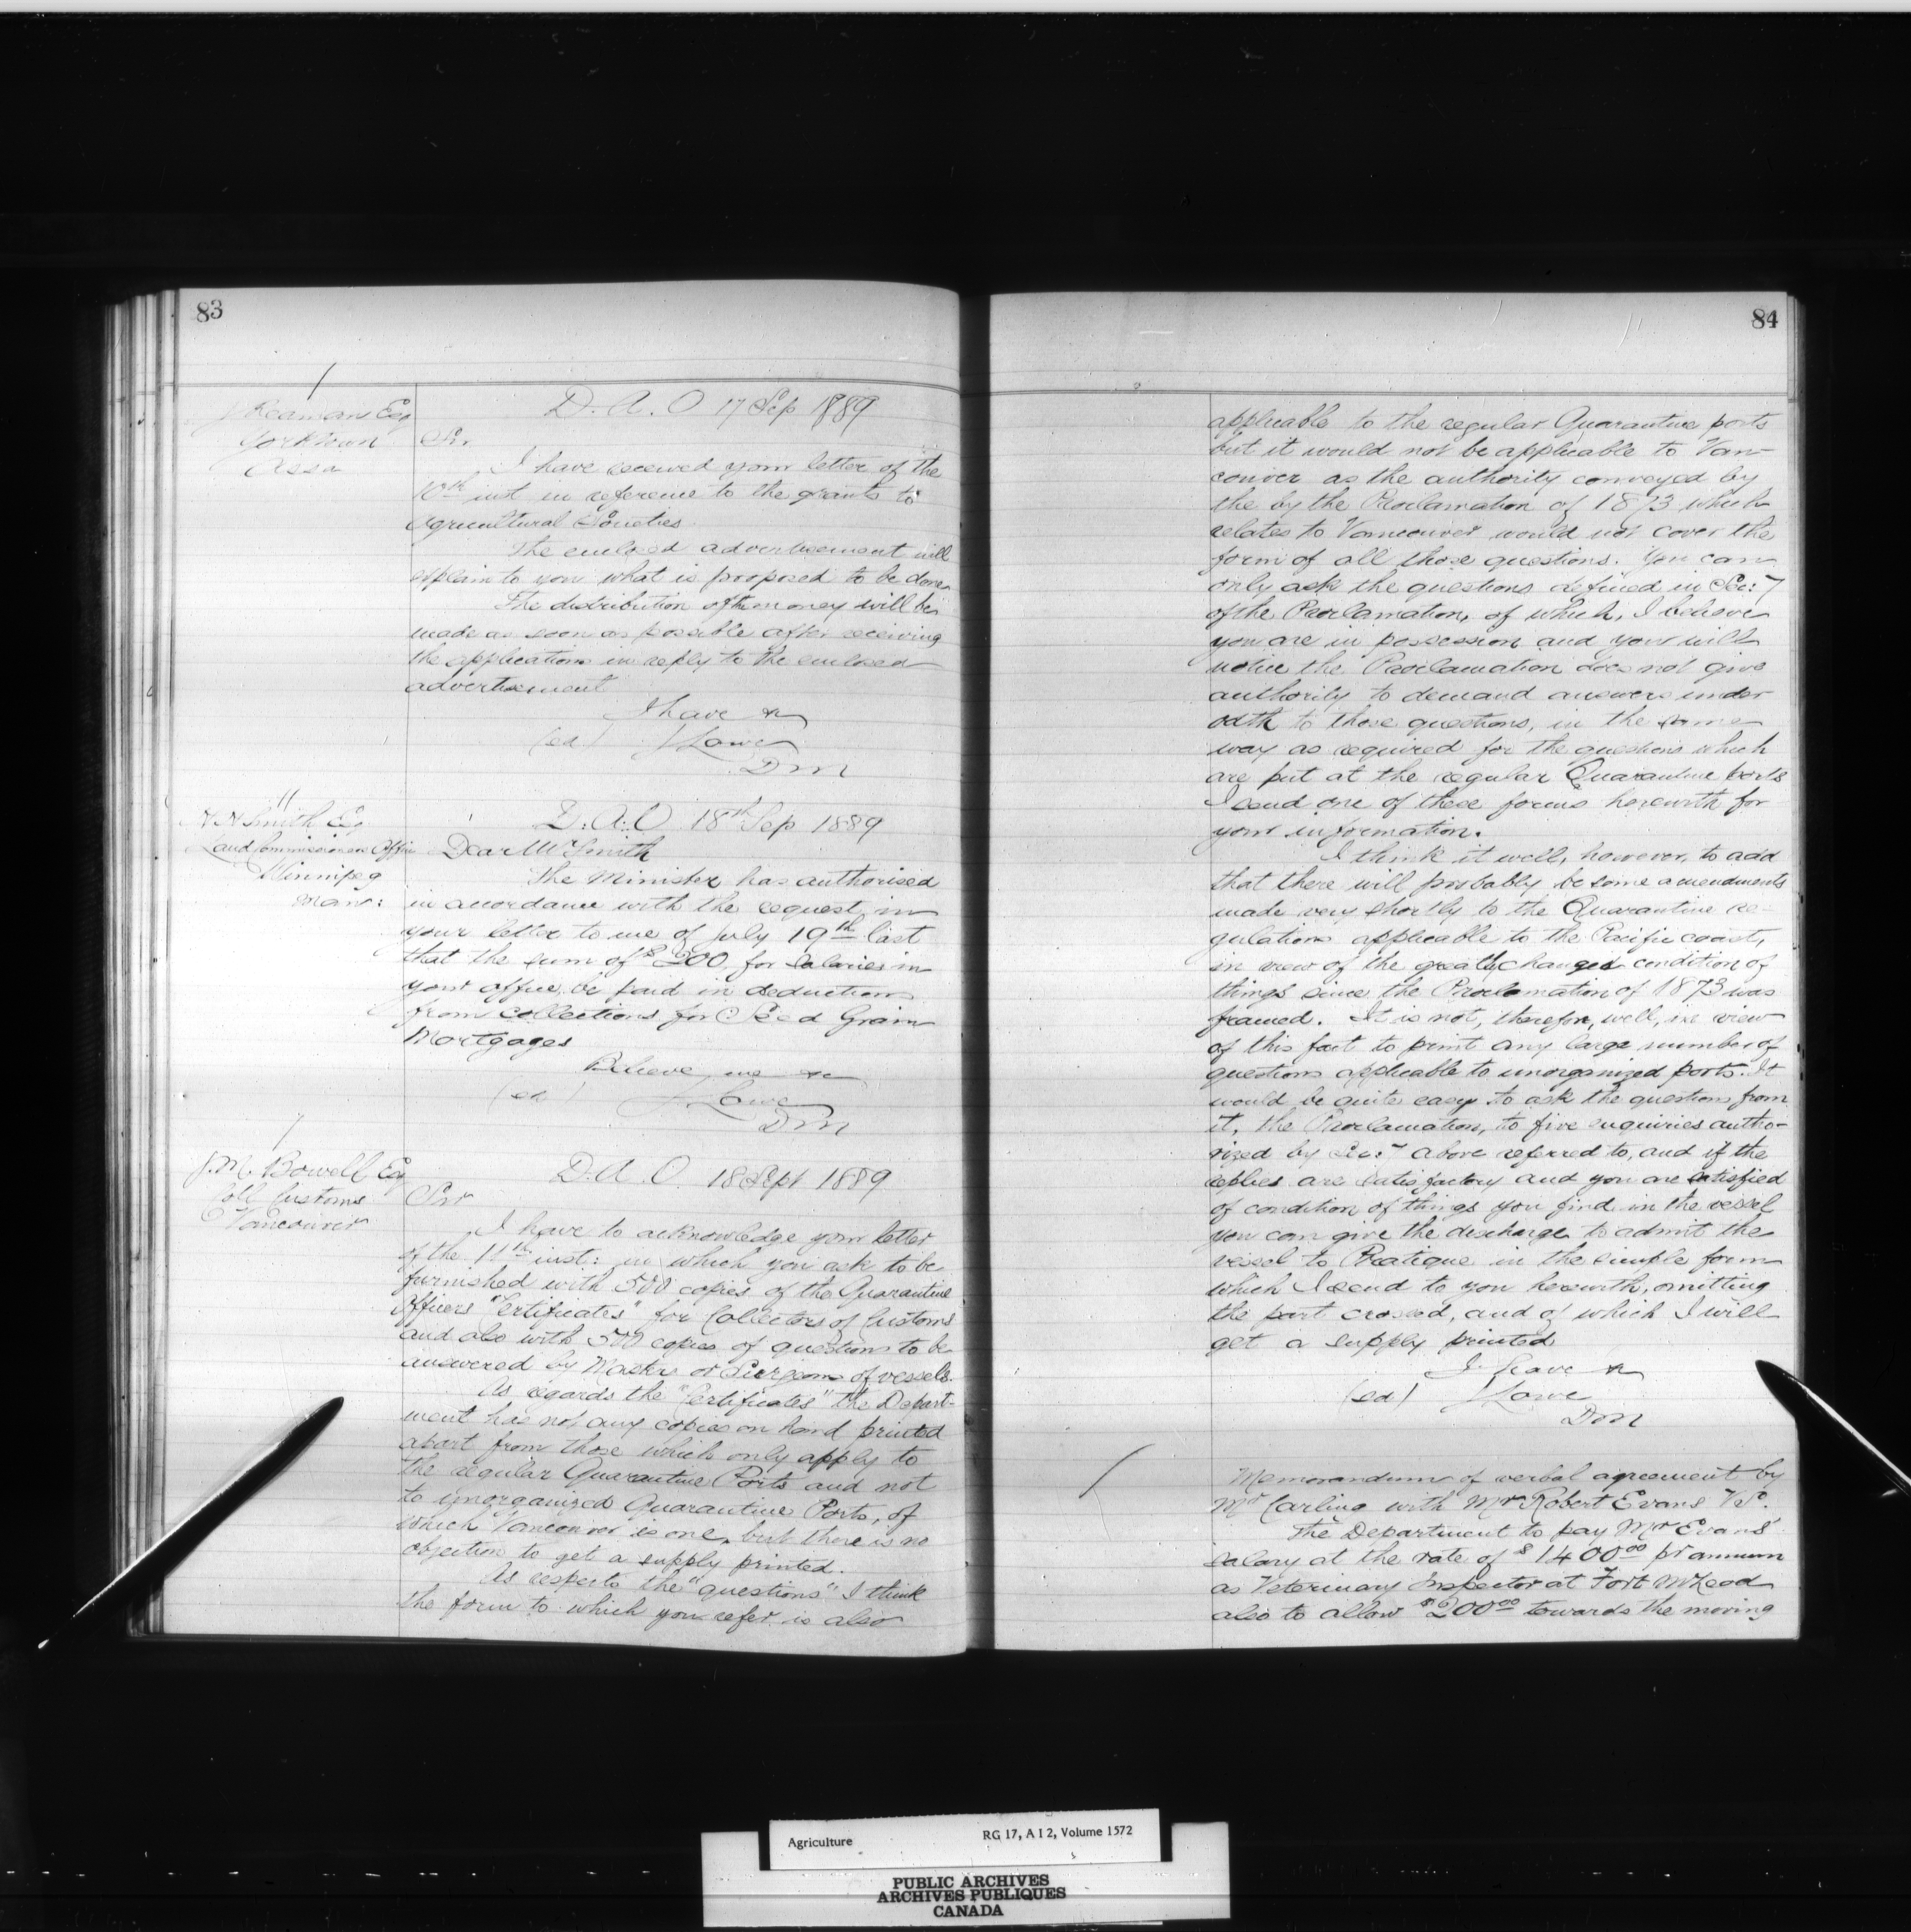 83
J Reaman Esq
Yorktown
Assa
D. A. O 17 Sep 1889
Sir
I have received your letter of the
10th inst in reference to the grants to
Agricultural Societies.
The enclosed advertisement will
explain to you what is proposed to be done.
The distribution of the money will be
made as soon as possible after receiving
the applications in reply to the enclosed
advertisement
I have &c
(sd) J Lowe
D M
Smith Esq
Land Commissioners Office
Winnipeg
Man:
D. A. O 18th Sep 1889
Dear Mr Smith
The Minister has authorised
in accordance with the request in
your letter to me of July 19th last
that the sum of $200 for salaries in
your office be paid in deduction
from collections for Seed Grain
Mortgages
Believe me &c
(sd) J Lowe
D M
J. M. Bowell Esq
Coll Customs
Vancouver
D. A. O. 18 Sept 1889
Sir
I have to acknowledge your letter
of the 11th inst: in which you ask to be
furnished with 500 copies of the Quarantine
Officers "Certificates" for Collectors of Customs
and also with 500 copies of questions to be
answered by Masters or Surgeons of vessels.
As regards the "Certificates" the Depart-
ment has not any copies on hand printed
apart from those which only apply to
the regular Quarantine Ports and not
to unorganized Quarantine Ports, of
which Vancouver is one, but there is no
objection to get a supply printed.
As respects the "questions" I think
the form to which you refer is also
84
applicable to the regular Quarantine ports
but it would not be applicable to Van-
couver as the authority conveyed by
the by the Proclamation of 1873 which
relates to Vancouver would not cover the
form of all those questions. You can
only ask the questions defined in Sec: 7
of the Proclamation, of which, I believe
you are in possession and you will
notice the Proclamation does not give
authority to demand answers under
oath to those questions, in the same
way as required for the questions which
are put at the regular Quarantine ports
I send one of these forms herewith for
your information.
I think it well, however, to add
that there will probably be some amendments
made very shortly to the Quarantine re-
gulations applicable to the Pacific coast,
in view of the greatly changed condition of
things since the Proclamation of 1873 was
framed. It is not, therefore, well, in view
of this fact to print any large number of
questions applicable to unorganized ports. It
would be quite easy to ask the questions from
it, the Proclamation, to five enquiries autho-
rized by Sec: 7 above referred to, and if the
replies are satisfactory and you are satisfied
of condition of things you find in the vessel
you can give the discharge to admit the
vessel to Pratique in the simple form
which I send to you herewith, omitting
the part crossed, and of which I will
get a supply printed
I have &c
(sd) J Lowe
D M
Memorandum of verbal agreement by
Mr Carling with Mr Robert Evans V.S.
The Department to pay Mr Evans'
salary at the rate of $1400.00 pr annum
as Veterinary Inspector at Fort McLeod
also to allow $200.00 towards the moving
Agriculture
RG 17, A I 2, Volume 1572
PUBLIC ARCHIVES
ARCHIVES PUBLIQUES
CANADA